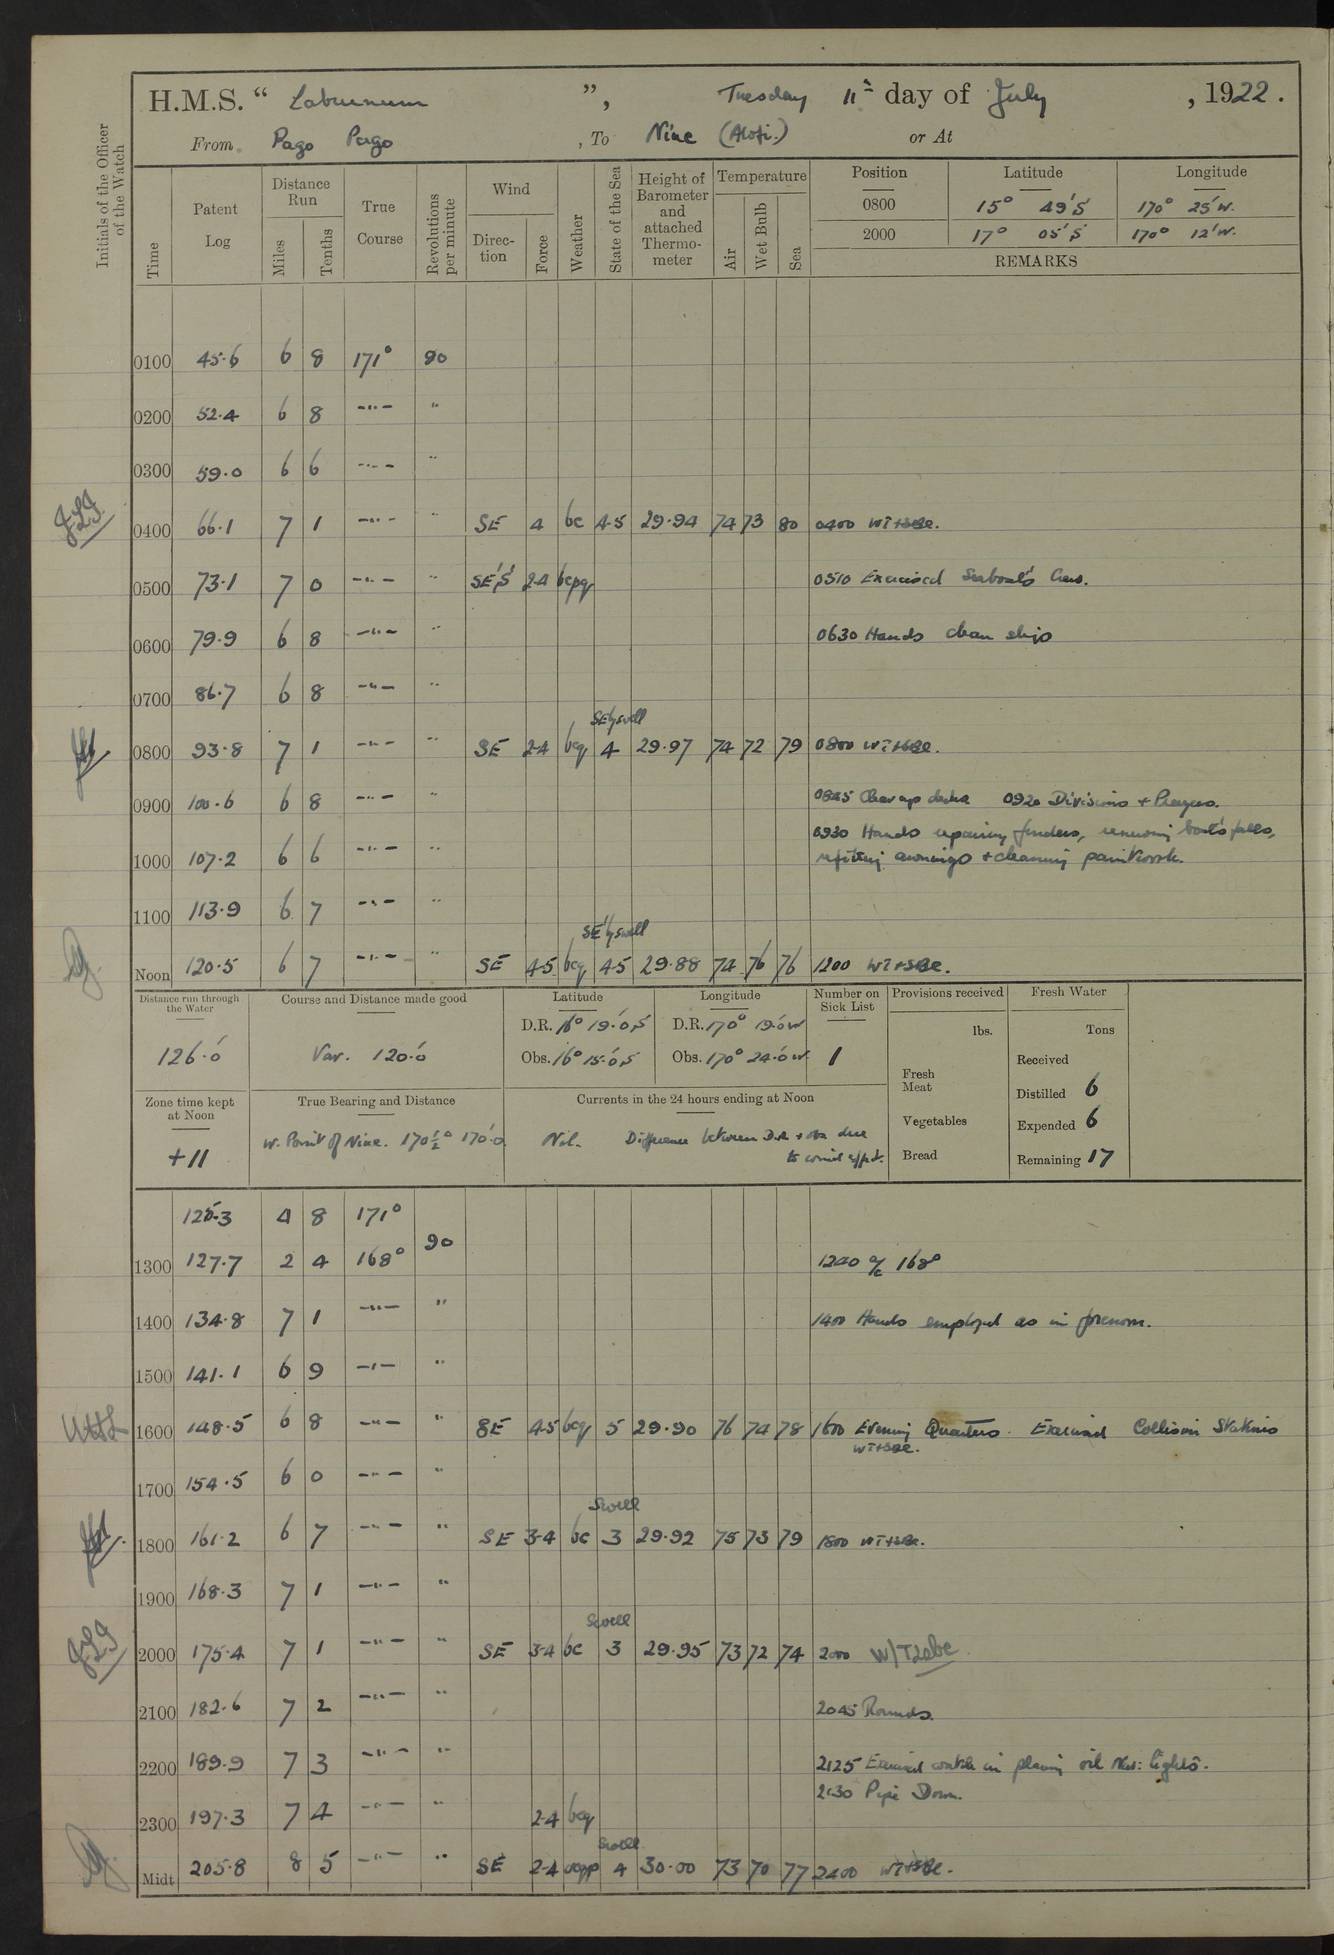 H.M.S. “ Laburnum ”, Tuesday 11th day of July , 1922.
From Pago Pago , To Niue (Alofi.) or At
Initials of the Officer of the Watch
Time
Patent Log
Distance Run
Miles
Tenths
True Course
Revolutions per minute
Wind
Direction
Force
Weather
State of the Sea
Height of Barometer and attached Thermometer
Temperature
Air
Wet Bulb
Sea
Position Latitude Longitude
0800 15° 49'S 170° 25'W.
2000 17° 05'S 170° 12'W.
REMARKS
0100 45.6 6 8 171° 90
0200 52.4 6 8 -"- "
0300 59.0 6 6 -"- "
0400 66.1 7 1 -"- " SE 4 bc 4-5 29.94 74 73 80 0400 WT+SBE.
0500 73.1 7 0 -"- " SE'S' 2-4 bcpq 0510 Exercised Seaboat's Crew.
0600 79.9 6 8 -"- " 0630 Hands clean ship
0700 86.7 6 8 -"- "
SE'ly swell
0800 93.8 7 1 -"- " SE 2-4 bcq 4 29.97 74 72 79 0800 WT+SBE.
0900 100.6 6 8 -"- " 0845 Clear up decks 0920 Divisions + Prayers.
0930 Hands repairing fenders, renewing boat's falls,
1000 107.2 6 6 -"- " refitting awnings + cleaning paintwork.
1100 113.9 6 7 -"- "
SE'ly swell
Noon 120.5 6 7 -"- " SE 4-5 bcq 4-5 29.88 74 76 76 1200 WT+SBE.
Distance run through the Water
126.0
Course and Distance made good
Var. 120.0
Latitude
D.R. 16° 19.0 S
Obs. 16° 15.0 S
Longitude
D.R. 170° 19.0 W
Obs. 170° 24.0 W
Number on Sick List
1
Provisions received
lbs.
Fresh Meat
Vegetables
Bread
Fresh Water
Tons
Received
Distilled 6
Expended 6
Remaining 17
Zone time kept at Noon
+11
True Bearing and Distance
W. Point of Niue. 170½° 170.0
Currents in the 24 hours ending at Noon
Nil. Difference between D.R. + obs due
to wind effect.
125.3 4 8 171°
90
1300 127.7 2 4 168° 1240 a/c 168°
1400 134.8 7 1 -"- " 1400 Hands employed as in forenoon.
1500 141.1 6 9 -"- "
1600 148.5 6 8 -"- " SE 4-5 bcq 5 29.90 76 74 78 1600 Evening Quarters. Exercised Collision Stations
WT+SBE.
1700 154.5 6 0 -"- "
Swell
1800 161.2 6 7 -"- " SE 3-4 bc 3 29.92 75 73 79 1800 WT+SBE.
1900 168.3 7 1 -"- "
Swell
2000 175.4 7 1 -"- " SE 3-4 bc 3 29.95 73 72 74 2000
2100 182.6 7 2 -"- " 2045 Rounds.
2200 189.9 7 3 -"- " 2125 Exercised watch in placing oil Nav: lights.
2130 Pipe Down.
2300 197.3 7 4 -"- " 2-4 bcq
Swell
Midt 205.8 8 5 -"- " SE 2-4 4 30.00 73 70 77 2400 WT+SBE.